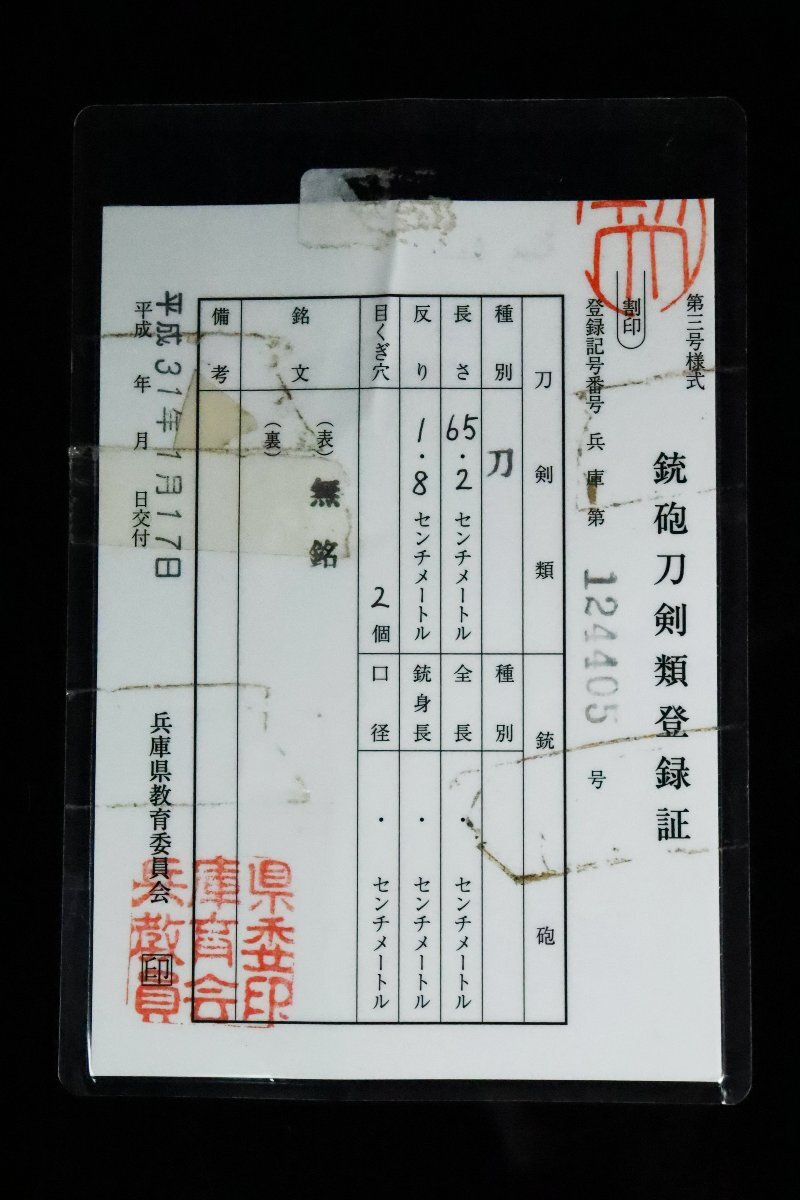 第三号様式
銃砲刀剣類登録証
割印
登録記号番号 兵庫第 124405 号
刀剣類
種別 刀
長さ 65.2 センチメートル
反り 1.8 センチメートル
目くぎ穴 2個
銘文
(表) 無銘
(裏)
備考
銃砲
種別
全長 ・ センチメートル
銃身長 ・ センチメートル
口径 ・ センチメートル
平成31年1月17日
平成 年 月 日交付
兵庫県教育委員会 印
兵庫県教育委員会印